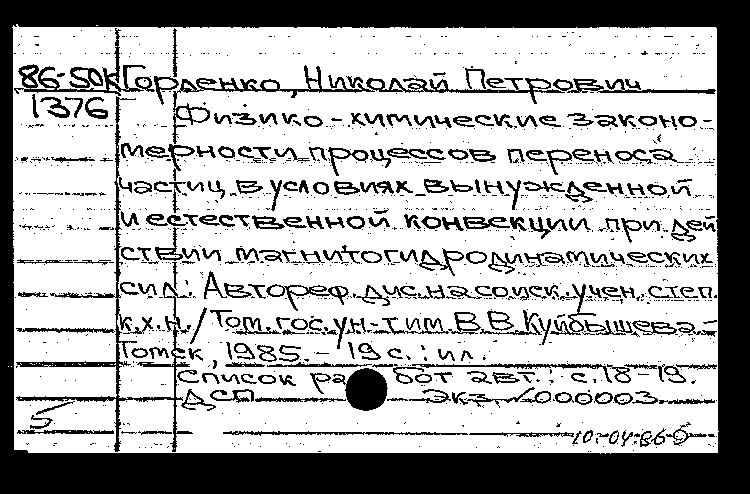 86-50к Горденко, Николай Петрович
1376 Физико-химические законо-
мерности процессов переноса
частиц в условиях вынужденной
и естественной конвекции при дей
ствии магнитогидродинамических
сил: Автореф. дис. на соиск. учен. степ.
к.х.н. / Том. гос. ун-т им. В.В. Куйбышева.-
Томск, 1985. - 19 с. : ил.
Список работ авт.: с. 18-19.
ДСП Экз. N000003.
5
10.04.86